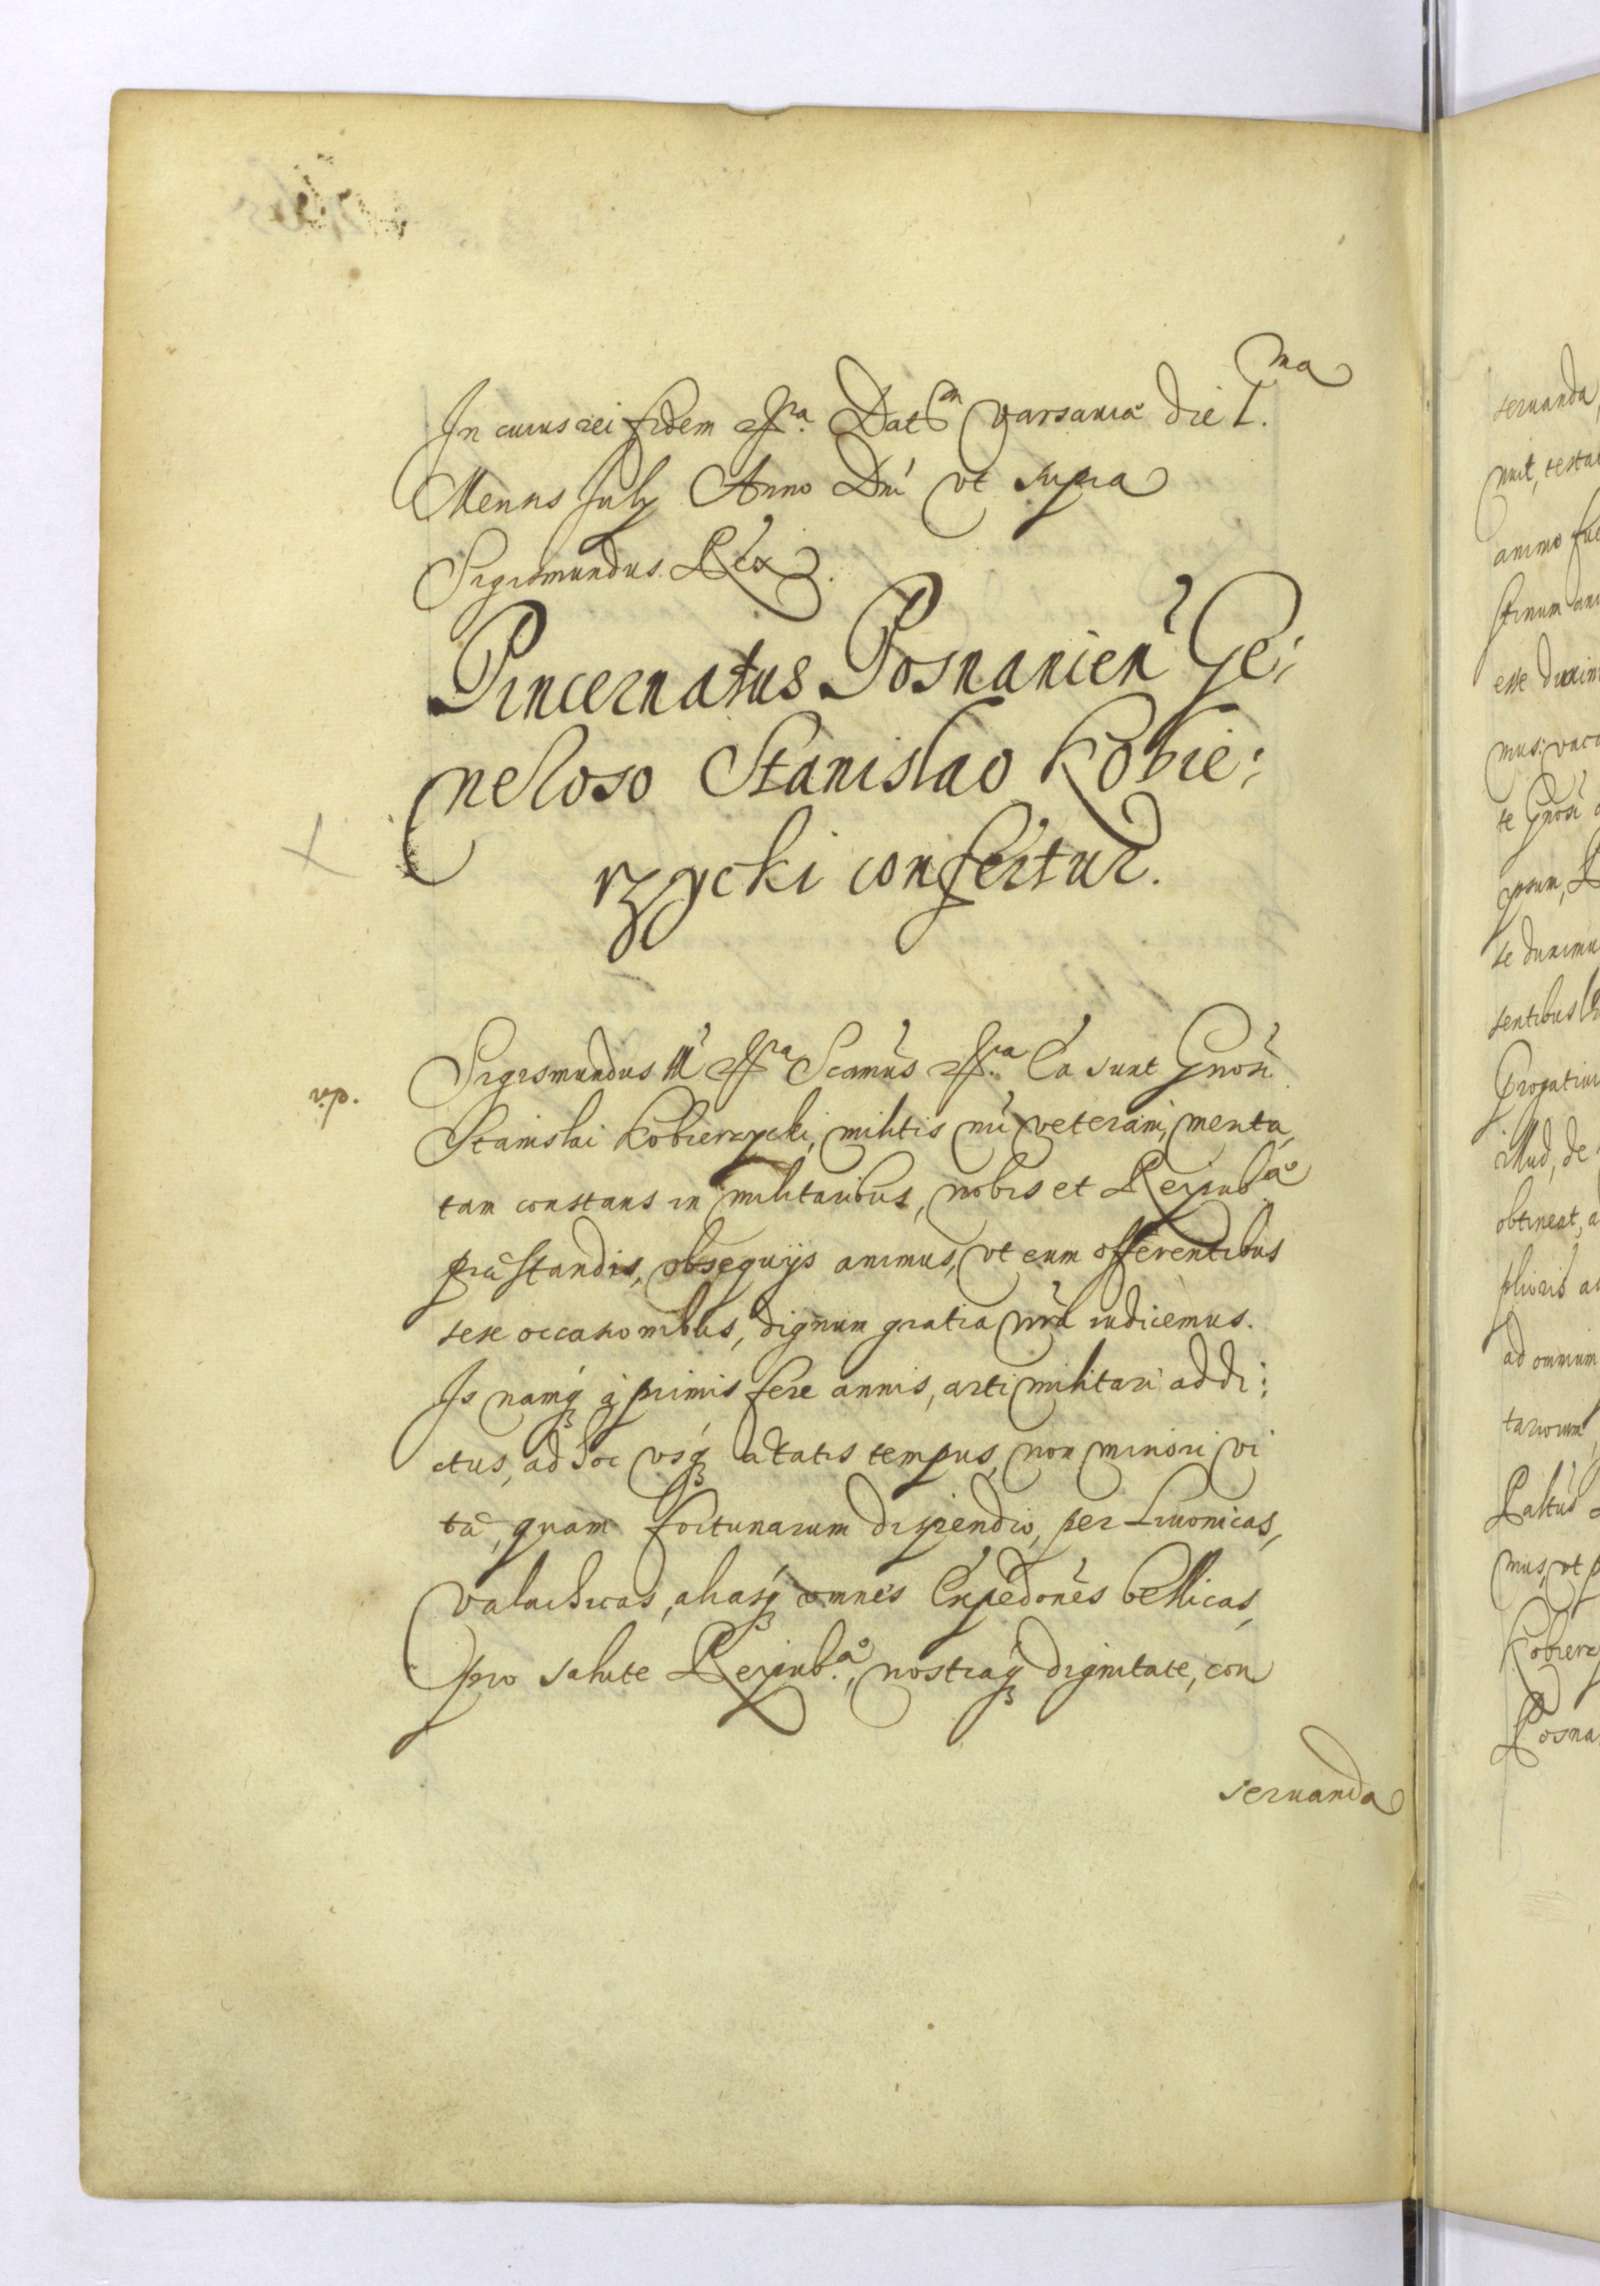 In cuius rei fidem etc.ra Datũ Varsauiæ die I.ma
Mensis July Anno Dni vt supra
Sigismundus Rex.
Pincernatus Posnanien Ge;
neroso Stanislao Kobie;
rzycki confertur.
Sigismundus III etc.ra Scamus etc.ra Ea sunt Gnosi
Stanislai Kobierzycki, militis nri veterani, merita,
tam constans in militaribus, nobis et Reipub.æ
præstandis, obsequijs animus, vt eum offerentibus
sese occasionibus, dignum gratia nra iudicemus.
Is namq a primis fere annis, arti militari addi;
ctus, ad hoc vsq ætatis tempus, non minori vi
tæ, quam fortunarum dispendio, per Liuonicas,
Valachicas, aliasq omnes Expedones bellicas,
pro salute Reipub.æ, nostraq dignitate, con
seruanda
seruanda
nuit, testa
animo
esse duxim
te Gnosi
ipsum,
te duximu
sentibus
illud, de
obtineat, a
ad omnium
tariorum
mus, vt p
Kobierz
Posna